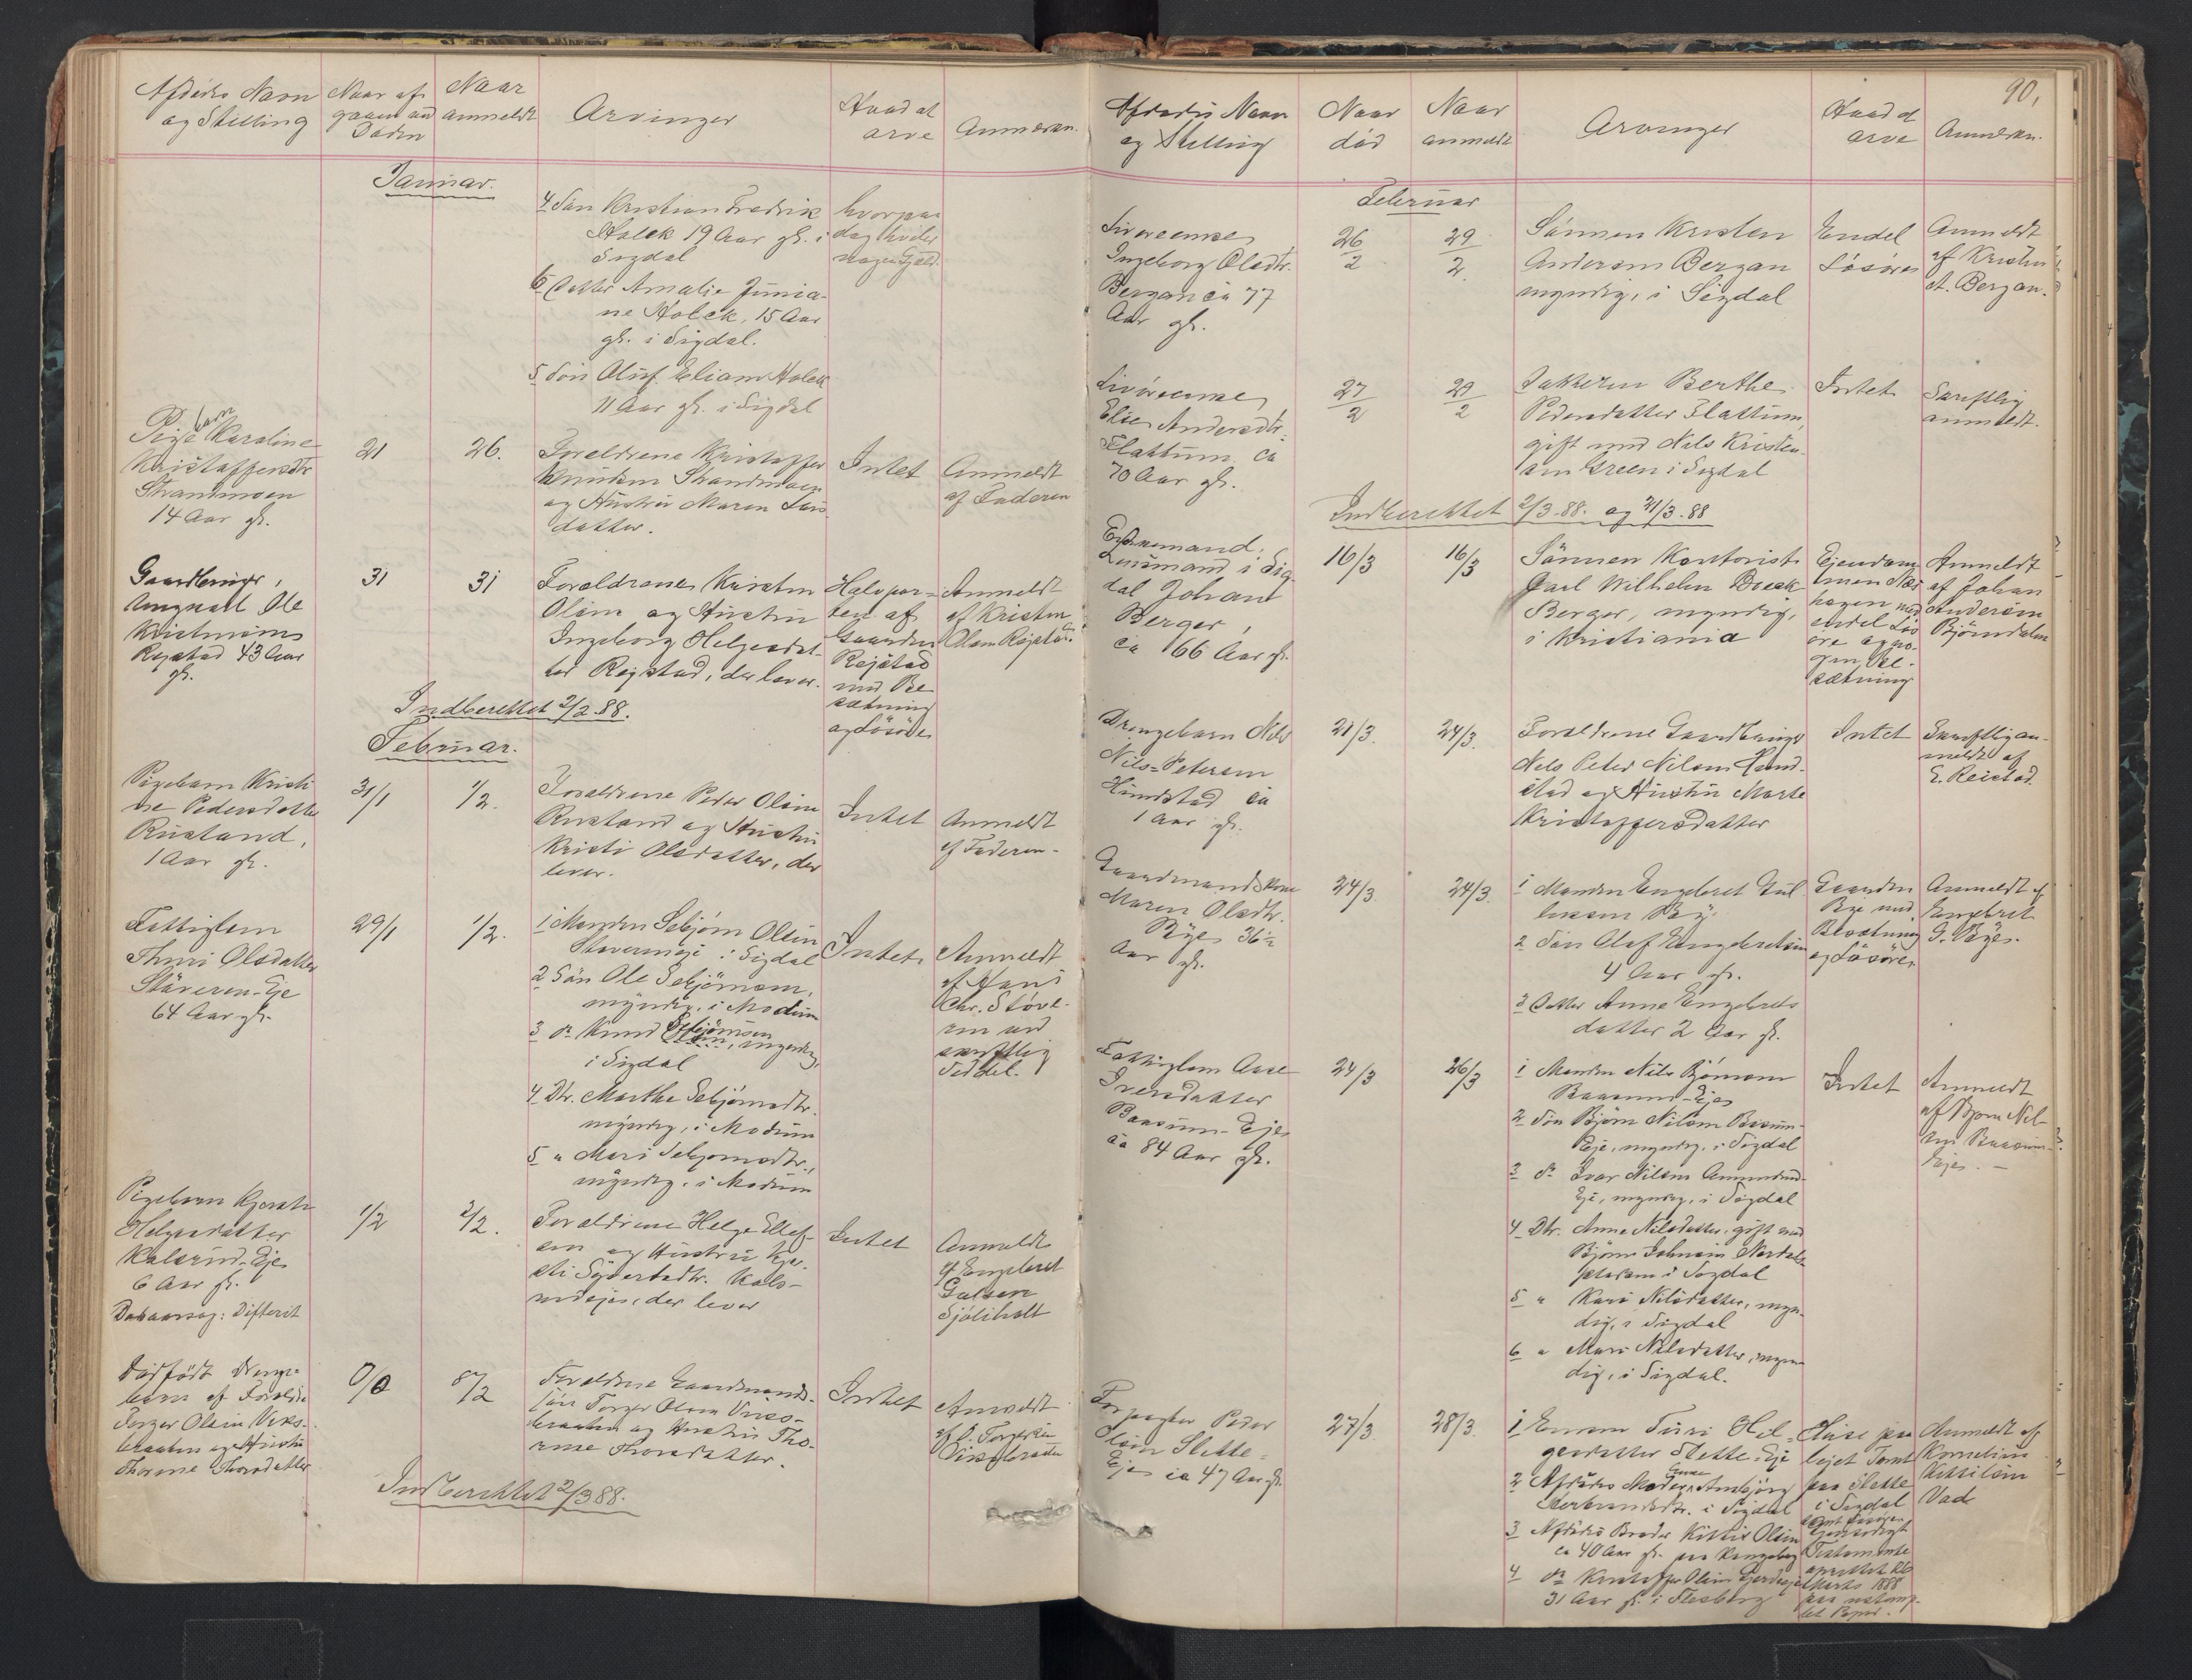 Afdødes Navn
og Stilling
Naar af-
gaaen ved
Døden
Naar
anmeldt
Arvinger
Hvad at
arve
Anmærkn.
Januar.
4 Søn Kristian Fredrik
Holck 19 Aar gl. i
Sigdal
hvorpaa
dog hviler
nogen Gjæld.
6 Datter Amalie Junia-
ne Holck, 15 Aar
gl. i Sigdal.
5 Søn Oluf Eliam Holck
11 Aar gl. i Sigdal
Pigebarn Karoline
Kristoffersdtr
Strandmoen
14 Aar gl.
21
26.
Forældrene Kristoffer
Knudsen Strandmoen
og Hustru Maren Lars
datter.
Intet
Anmeldt
af Faderen
Gaardbruger,
Ungkarl Ole
Kristensen
Rejstad 43 Aar
gl.
31
31
Forældrene Kristen
Olsen og Hustru
Ingeborg Helgesdat-
ter Rejstad, der lever.
Halvpar-
ten af
Gaarden
Rejstad
med Be
sætning
og Løsøre
Anmeldt
af Kristen
Olsen Rejstad.
Indberettet 2/2 88.
Februar.
Pigebarn Kristi
ne Pedersdatter
Rustand,
1 Aar gl.
31/1
1/2.
Forældrene Peder Olsen
Rustand og Hustru
Kristi Olsdatter, der
lever.
Intet
Anmeldt
af Faderen-
Fattiglem
Thuri Olsdatter
Støveren-Eje
64 Aar gl.
29/1
1/2.
1 Manden Sebjørn Olsen
Støverneje i Sigdal
2 Søn Ole Sebjørnsen,
myndig, i Modum
3 do Knud Sebjørnsen, myndig,
i Sigdal
4 Dtr. Marthe Sebjørnsdtr.
myndig, i Modum
5 " Mari Sebjørnsdtr.,
myndig, i Modum
Intet
Anmeldt
af Hans
Chr. Støve-
ren ved
skriftlig
Seddel.
Pigebarn Kjersti
Helgesdatter
Kalsrud-Eje
6 Aar gl.
Dødsaarsag: Difterit
1/2
2/2.
Forældrene Helge Ellef-
sen og Hustru Kjer-
sti Sjøvertsdtr. Kals-
rudeje, der lever
Intet
Anmeldt
af Engebret
Gulsen
Sjøliholt
Dødfødt Drenge-
barn af Forældre
Torger Olsen Viks-
braaten og Hustru
Thorine Thorsdatter
0/0
8/2
Forældrene Gaardmands-
søn Torger Olsen Viks-
braaten og Hustru Tho-
rine Thorsdatter.
Intet
Anmeldt
af O. Torgersen
Viksbraaten
Indberettet 2/3 88.
90,
Afdødes Navn
og Stilling
Naar
død
Naar
anmeldt
Arvinger
Hvad at
arve
Anmerkn.
Februar
Livøreenke
Ingeborg Olsdtr.
Bergan ca 77
Aar gl.
26/2
29/2
Sønnen Kristen
Andersen Bergan
myndig, i Sigdal
Endel
Løsøre
Anmeldt
af Kristen
A. Bergan.
Livøreenke
Else Andersdtr.
Flattum ca
70 Aar gl.
27/2
29/2
Datteren Berthe
Pedersdatter Flattum,
gift med Nils Kristen-
sen Green i Sigdal
Intet
Skriftlig
anmeldt.
Indberettet 2/3 88. og 31/3 .88
Enkemand,
Lensmand i Sig-
dal Johan
Berger,
ca 66 Aar gl.
16/3
16/3
Sønnen Kontorist
Carl Wilhelm Boeck
Berger, myndig,
i Kristiania
Ejendom-
men Nes
hagen med
endel Løs
øre og no-
gen Be-
sætning
Anmeldt
af Johan
Andersen
Bjørndalen
Drengebarn Nils
Nils-Petersen
Hundstad ca
1 Aar gl.
21/3.
24/3.
Forældrene Gaardbruger
Nils Peter Nilsen Hund-
stad og Hustru Marte
Kristoffersdatter
Intet
Skriftlig an-
meldt af
E. Reistad.
Gaardmandskone
Maren Olsdtr.
Bye 36 1/2
Aar gl.
24/3.
24/3.
1 Manden Engebret Gul
liksen Bye
2 Søn Olaf Engebretsen
4 Aar gl.
3 Datter Anne Engebrets
datter 2 Aar gl.
Gaarden
Bye med
Besætning
og Løsøre
Anmeldt af
Engebret
G. Bye.
Fattiglem Aase
Iversdatter
Baasum-Eje
ca 84 Aar gl.
24/3
26/3
1 Manden Nils Bjørnsen
Baasum-Eje
2 Søn Bjørn Nilsen Baasum-
Eje, myndig, i Sigdal
3 do Ivar Nilsen Ammerud-
Eje, myndig, i Sigdal
4 Dtr. Anne Nilsdatter, gift med
Bjørn Johnsen Nordals
pladsen i Sigdal
5 " Kari Nilsdatter, myn-
dig, i Sigdal
6 " Mari Nilsdatter, myn-
dig, i Sigdal.
Intet
Anmeldt
af Bjørn Nil-
sen Baasum-
Eje. -
Forpagter Peder
Olsen Slette-
Eje ca 47 Aar gl.
27/3.
28/3.
1 Enken Turi Hel-
gesdatter Slette-Eje
2 Afdødes Moder Enke Ambjørg
Herbrandsdtr. i Sigdal
3 Afdødes Broder Kittil Olsen
ca 40 Aar gl. paa Kongsberg
4 do Kristoffer Olsen Gjerdeseje
31 Aar gl. i Flesberg
Huse paa
lejet Tomt
paa Slette
i Sigdal
samt Løsøre.
Gjensidigt
Testamente
oprettet 26
Marts 1888
paa ustemp-
let Papir.
Anmeldt af
Kornelius
Kittilsen
Vad